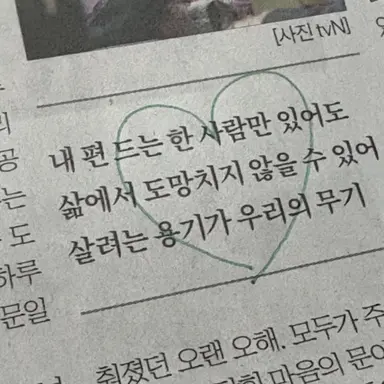 [사진 tvN]
내 편 드는 한 사람만 있어도
삶에서 도망치지 않을 수 있어
살려는 용기가 우리의 무기
공
는
도
하루
문일
춰졌던 오랜 오해. 모두가 주
마음의 문이